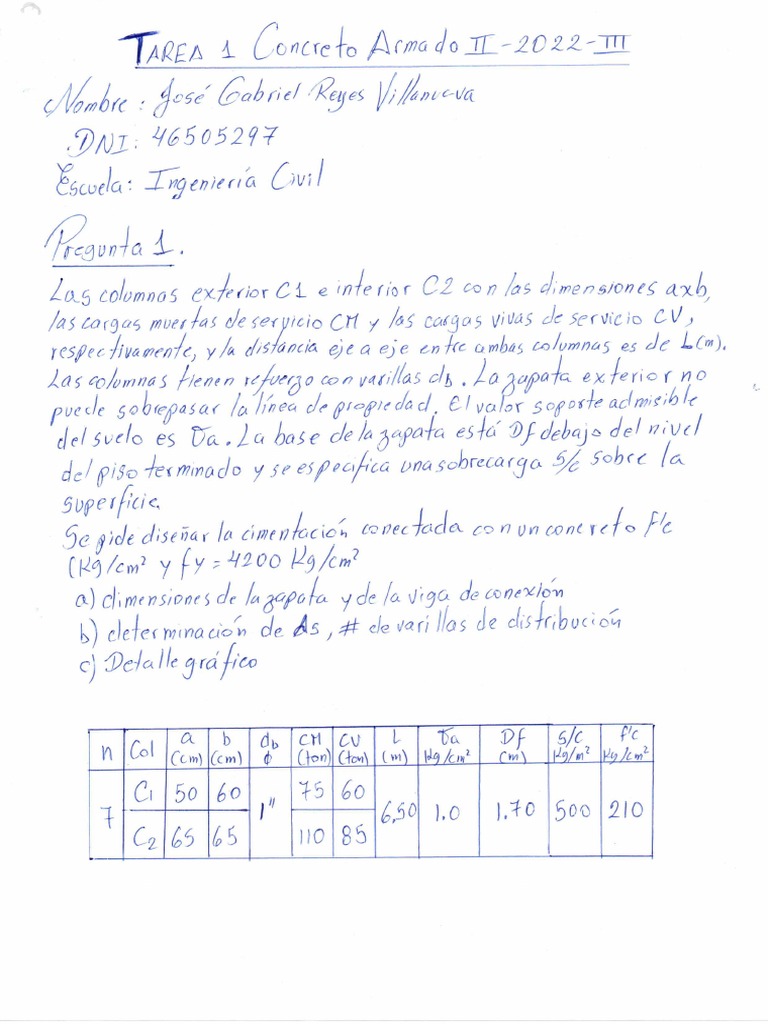 TAREA 1 Concreto Armado II - 2022 - III
Nombre: José Gabriel Reyes Villanueva
DNI: 46505297
Escuela: Ingeniería Civil
Pregunta 1.
Las columnas exterior C1 e interior C2 con las dimensiones axb,
las cargas muertas de servicio CM y las cargas vivas de servicio CV,
respectivamente, y la distancia eje a eje entre ambas columnas es de L(m).
Las columnas tienen refuerzo con varillas db. La zapata exterior no
puede sobrepasar la línea de propiedad. El valor soporte admisible
del suelo es σa. La base de la zapata está Df debajo del nivel
del piso terminado y se especifica una sobrecarga s/c sobre la
superficie.
Se pide diseñar la cimentación conectada con un concreto f'c
(Kg/cm² y fy = 4200 Kg/cm²
a) dimensiones de la zapata y de la viga de conexión
b) determinación de As, # de varillas de distribución
c) Detalle gráfico
n Col a (cm) b (cm) db φ CM (ton) CV (ton) L (m) σa Kg/cm² Df (m) s/c Kg/m² f'c Kg/cm²
7 C1 50 60 1" 75 60 6,50 1.0 1.70 500 210
C2 65 65 110 85